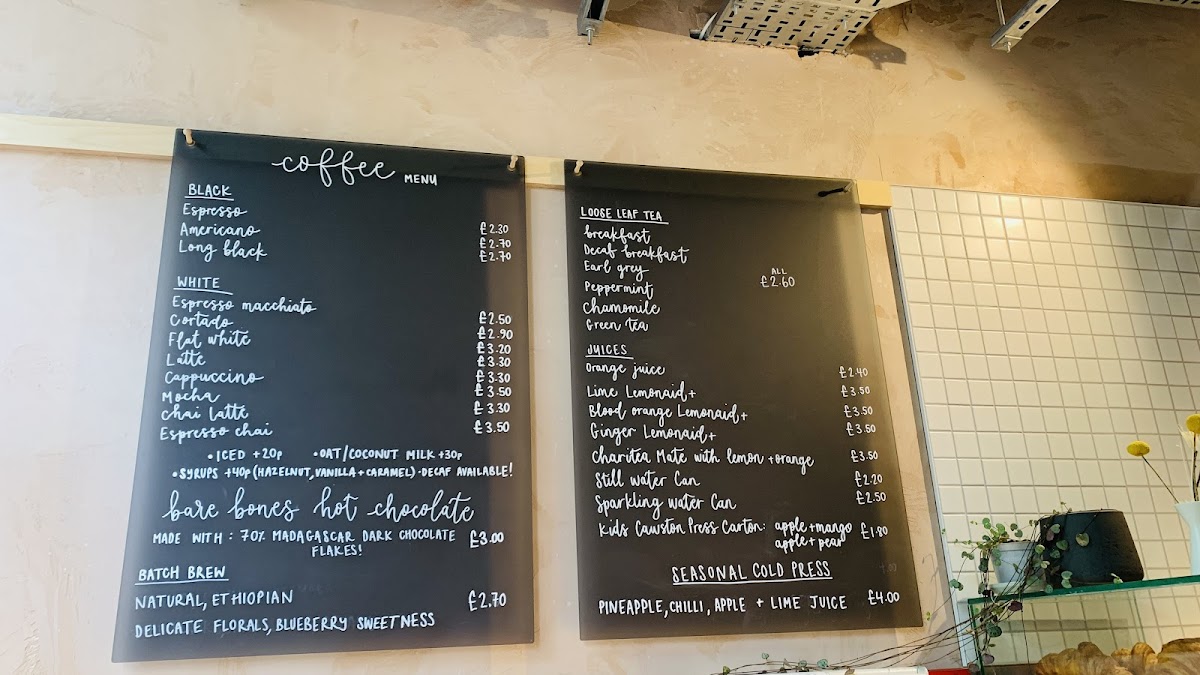 coffee MENU
BLACK
Espresso £2.30
Americano £2.70
Long black £2.70
WHITE
Espresso macchiato £2.50
Cortado £2.90
Flat white £3.20
Latte £3.30
Cappuccino £3.30
Mocha £3.50
Chai latte £3.30
Espresso chai £3.50
•ICED +20p •OAT/COCONUT MILK +30p
•SYRUPS +40p (HAZELNUT, VANILLA + CARAMEL) •DECAF AVAILABLE!
bare bones hot chocolate
MADE WITH : 70% MADAGASCAR DARK CHOCOLATE £3.00
FLAKES!
BATCH BREW
NATURAL, ETHIOPIAN £2.70
DELICATE FLORALS, BLUEBERRY SWEETNESS
LOOSE LEAF TEA
breakfast
Decaf breakfast
Earl grey ALL
Peppermint £2.60
Chamomile
Green tea
JUICES
Orange juice £2.40
Lime Lemonaid+ £3.50
Blood orange Lemonaid+ £3.50
Ginger Lemonaid+ £3.50
Charitea Mate with lemon + orange £3.50
Still water Can £2.20
Sparkling water Can £2.50
Kids Cawston Press Carton: apple + mango £1.80
apple + pear
SEASONAL COLD PRESS
PINEAPPLE, CHILLI, APPLE + LIME JUICE £4.00